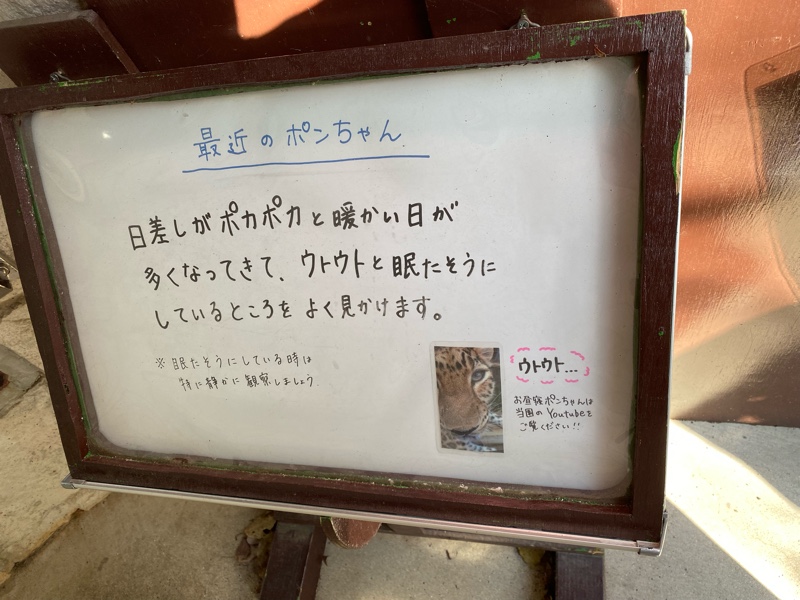 最近のポンちゃん
日差しがポカポカと暖かい日が
多くなってきて、ウトウトと眠たそうに
しているところをよく見かけます。
※ 眠たそうにしている時は
特に静かに観察しましょう
ウトウト...
お昼寝ポンちゃんは
当園のYoutubeを
ご覧ください!!